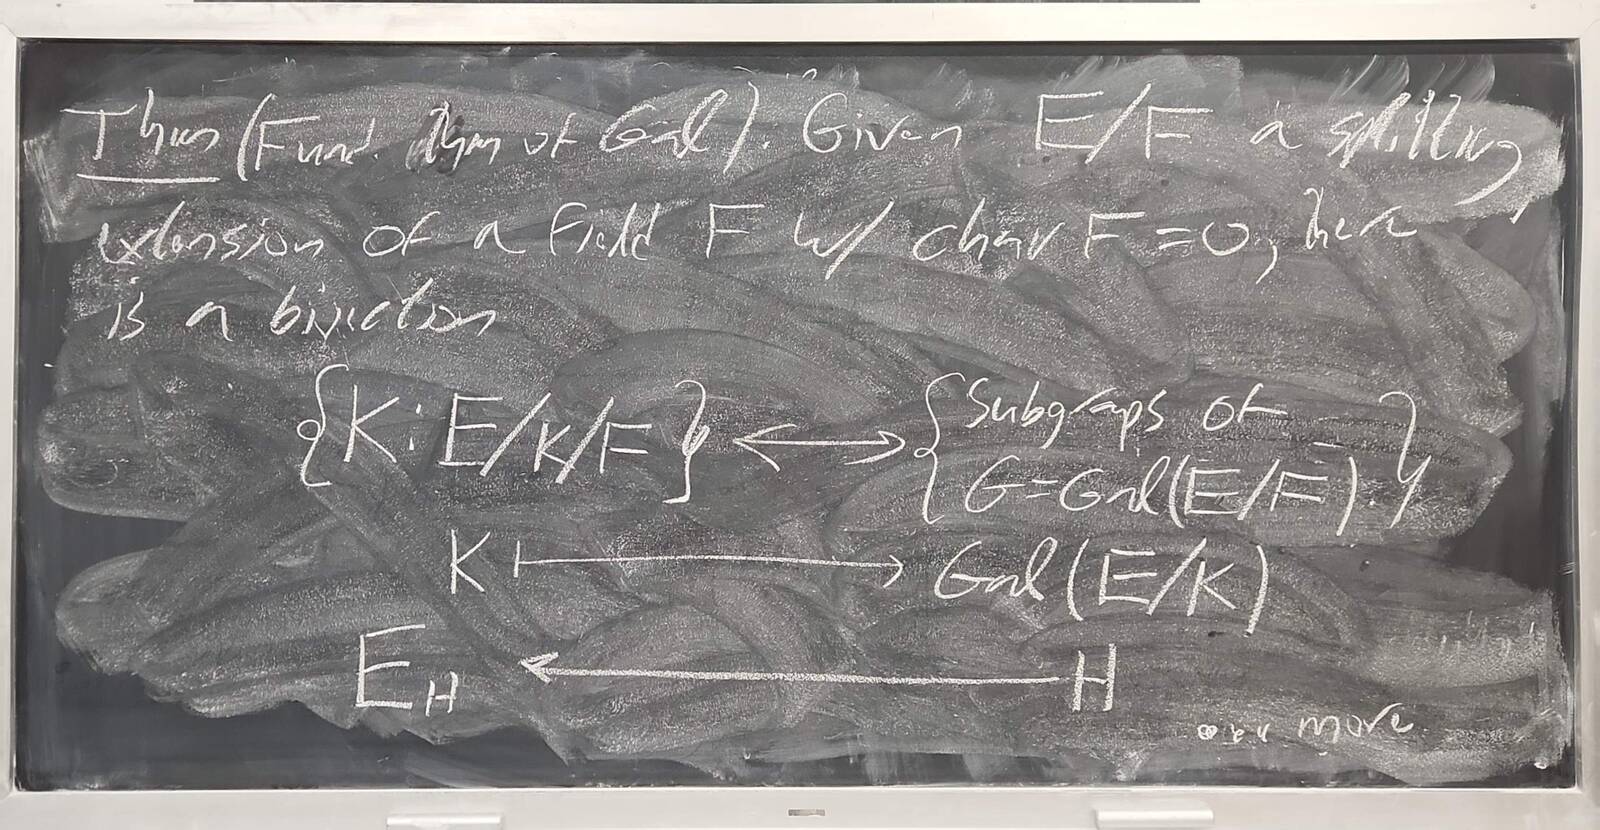 Thm (Fund. thm of Gal). Given E/F a splitting
extension of a field F w/ char F = 0, there
is a bijection
{K: E/K/F} ↔ {Subgraps of G=Gal(E/F)}
K ↦ Gal(E/K)
E_H ← H
more